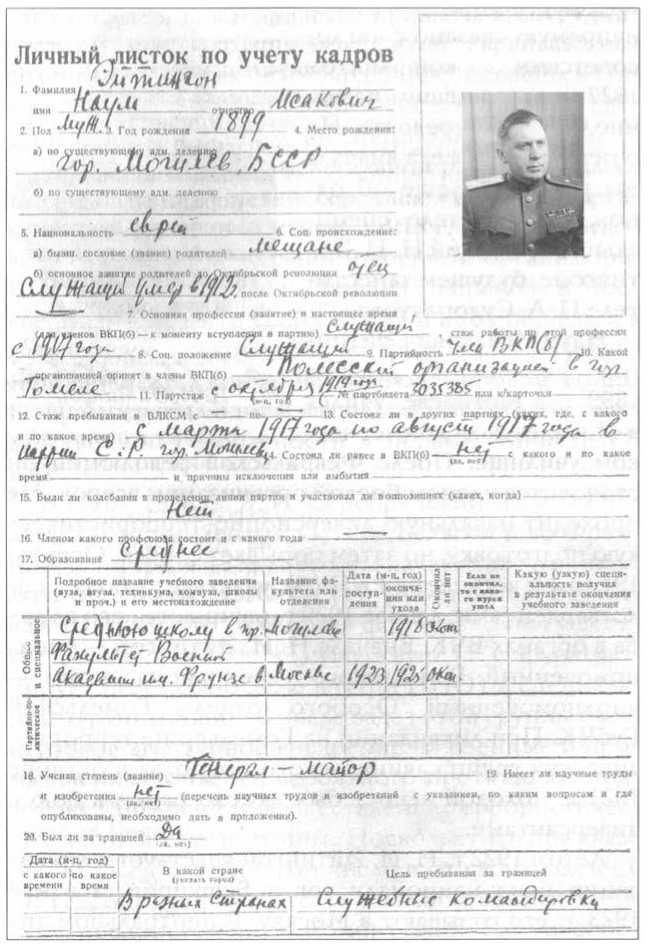 Личный листок по учету кадров
1. Фамилия Эйтингон
имя Наум отчество Исакович
2. Пол муж. 3. Год рождения 1899 4. Место рождения:
а) по существующему адм. делению
гор. Могилев, БССР
б) по существующему адм. делению
5. Национальность еврей 6. Соц. происхождение:
а) бывш. сословие (звание) родителей мещане
б) основное занятие родителей до Октябрьской революции отец
служащий умер в 1912г. после Октябрьской революции
7. Основная профессия (занятие) и настоящее время
(для членов ВКП(б) — к моменту вступления в партию) служащий, стаж работы по этой профессии
с 1917 года 8. Соц. положение служащий 9. Партийность член ВКП(б) 10. Какой
организацией принят в члены ВКП(б) Полесской организацией в гор.
Гомеле 11. Партстаж с октября 1919 года (м-ц, год) № партбилета 2035385 или к/карточки
12. Стаж пребывания в ВЛКСМ с — по — 13. Состоял ли в других партиях (каких, где, с какого
и по какое время) с марта 1917 года по август 1917 года в
партии С.-Р. гор. Могилев 14. Состоял ли ранее в ВКП(б) нет (да, нет) с какого и по какое
время и причины исключения или выбытия
15. Были ли колебания в проведении линии партии и участвовал ли в оппозициях (каких, когда)
Нет
16. Членом какого профсоюза состоит и с какого года —
17. Образование среднее
Подробное название учебного заведения (вуза, втуза, техникума, комвуза, школы и проч.) и его местонахождение
Название факультета или отделения
Дата (м-ц, год)
поступления
окончания или ухода
Окончил ли нет
Если не окончил, то с какого курса ушел
Какую (узкую) специальность получил в результате окончания учебного заведения
Общее и специальное
Среднюю школу в гор. Могилеве 1918 окон
Факультет Военной
Академии им. Фрунзе в Москве 1923 1925 окон
Партийно-политическое
18. Ученая степень (звание) Генерал-майор 19. Имеет ли научные труды
и изобретения нет (да, нет) (перечень научных трудов и изобретений с указанием, по каким вопросам и где
опубликованы, необходимо дать в приложении).
20. Был ли за границей Да (да, нет)
Дата (м-ц, год)
с какого времени
по какое время
В какой стране (указать город)
Цель пребывания за границей
В разных странах Служебные командировки